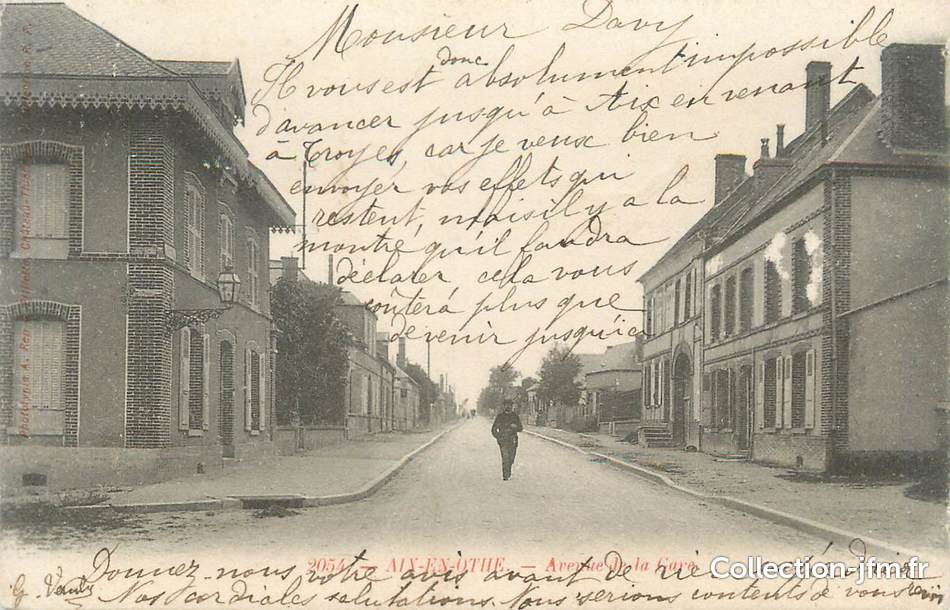 Monsieur Davy
Il vous est donc absolument impossible
d'avancer jusqu'à Aix en venant
à Troyes, car je veux bien
envoyer vos effets qui
restent, mais il y a la
montre qu'il faudra
déclarer, cela vous
coûtera plus que
devenir jusqu'ici
2054. — AIX-EN-OTHE. — Avenue de la Gare
Donnez-nous votre avis avant de rien
Nos cordiales salutations. Nous serions contents de vous
G.
Collection-jfm.fr